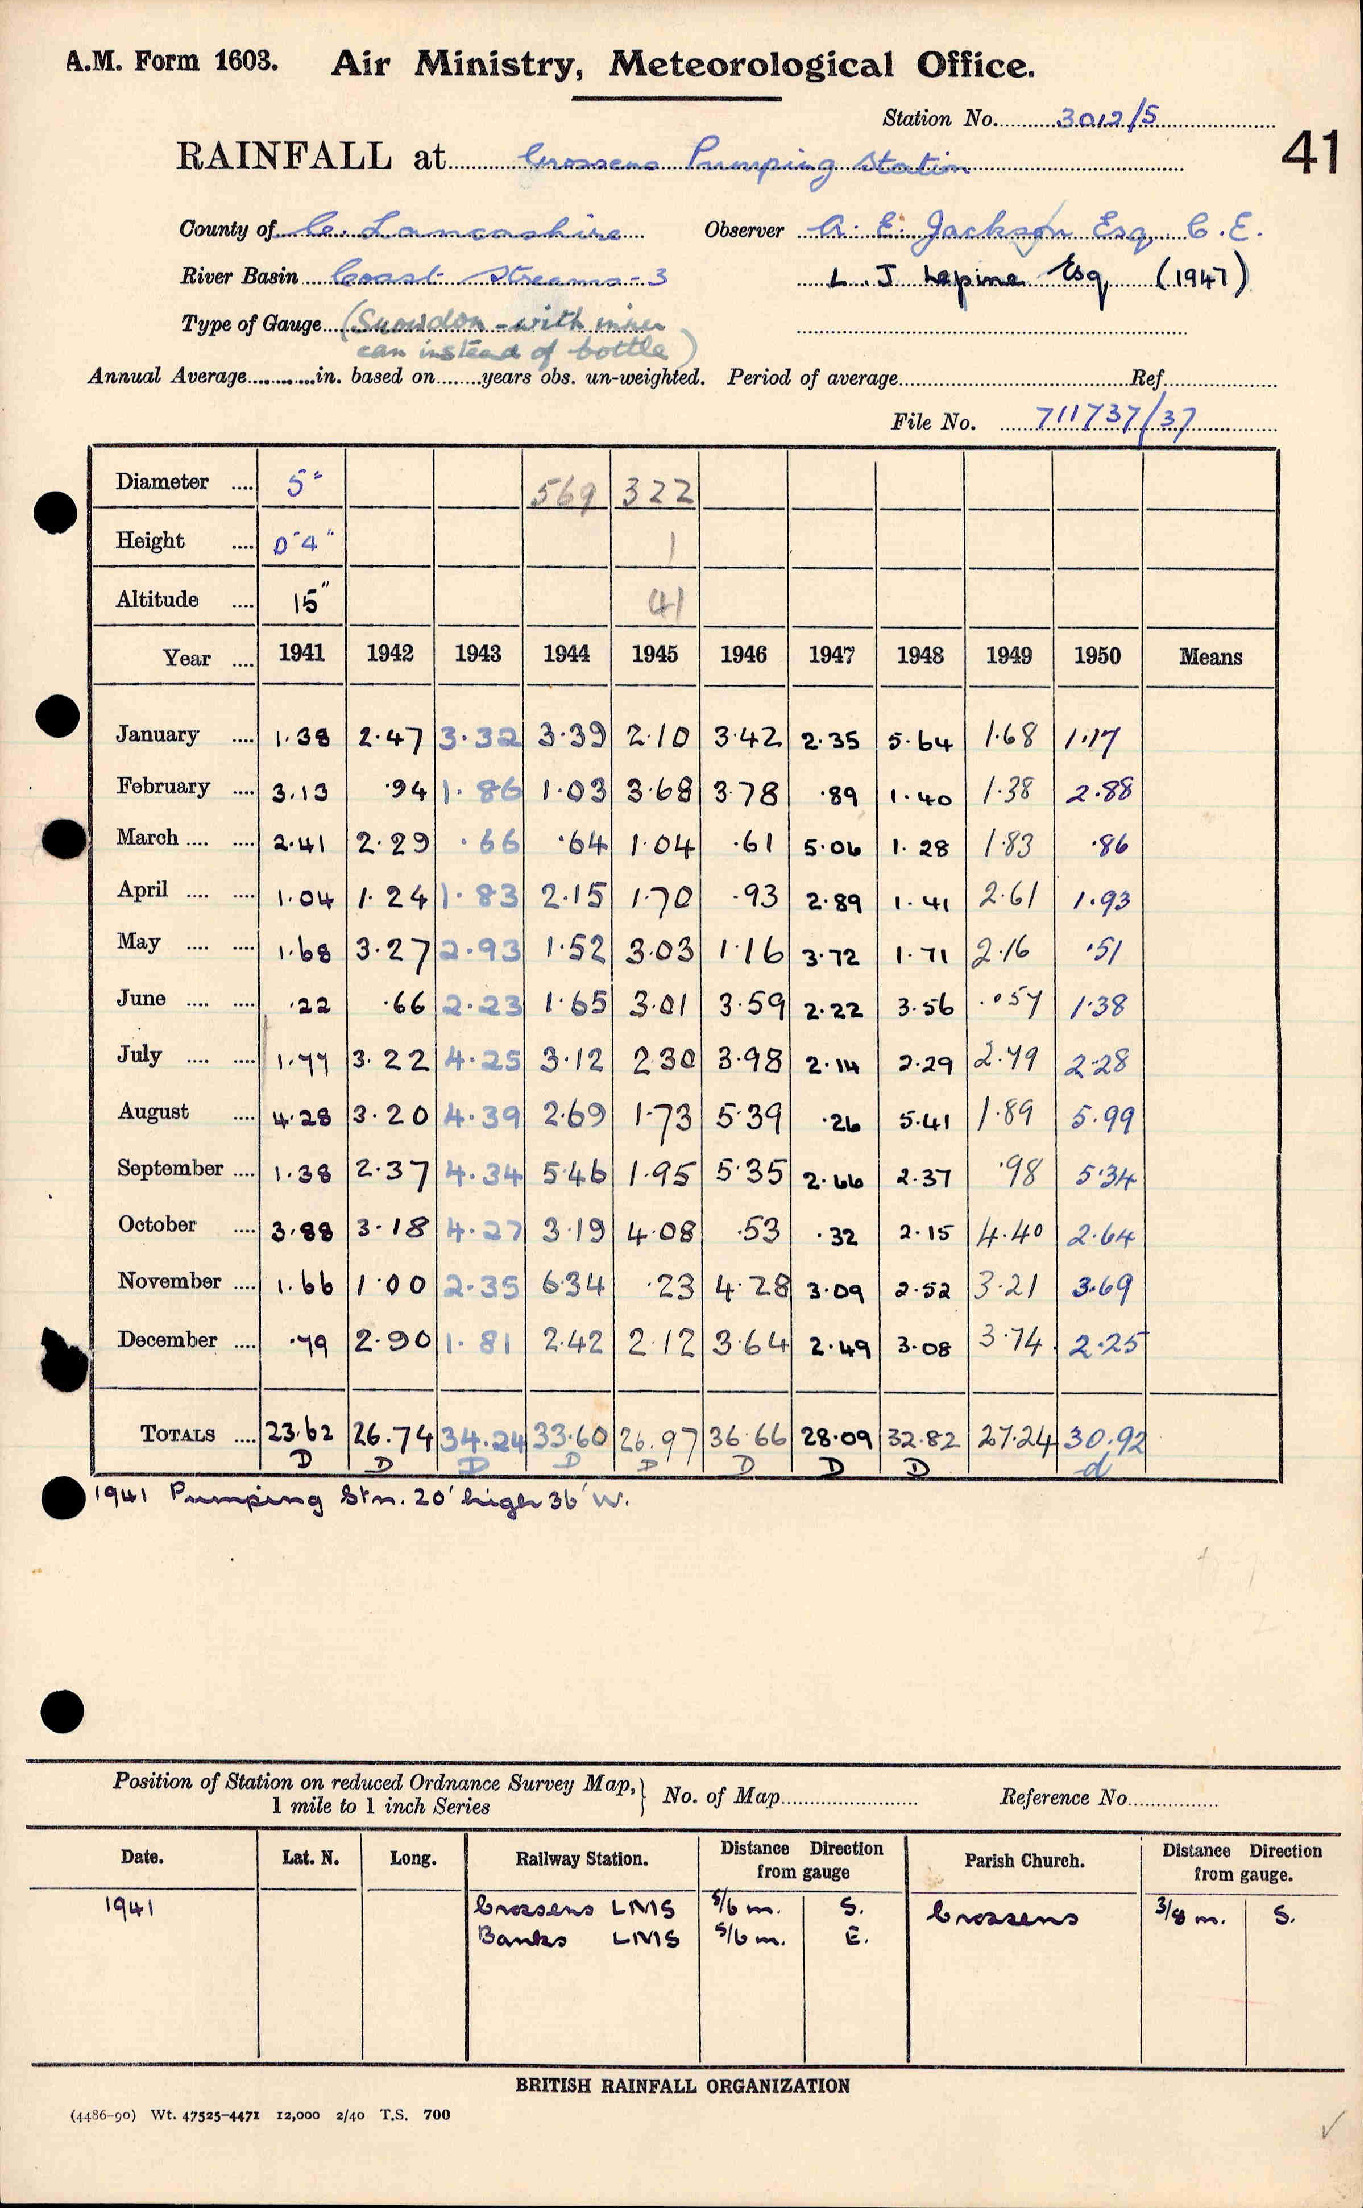 A.M. Form 1603. Air Ministry, Meteorological Office.
Station No. 3012/5
41
RAINFALL at Crossens Pumping Station
County of C. Lancashire Observer A. E. Jackson Esq. C.E.
River Basin Coast Streams-3 L. J. Lepine Esq (1947)
Type of Gauge (Snowdon - with inner
can instead of bottle)
Annual Average in. based on years obs. un-weighted. Period of average Ref.
File No. 711737/37
Diameter 5" 569 322
Height 0'4" 1
Altitude 15" 41
Year 1941 1942 1943 1944 1945 1946 1947 1948 1949 1950 Means
January 1.38 2.47 3.32 3.39 2.10 3.42 2.35 5.64 1.68 1.17
February 3.13 .94 1.86 1.03 3.68 3.78 .89 1.40 1.38 2.88
March 2.41 2.29 .66 .64 1.04 .61 5.06 1.28 1.83 .86
April 1.04 1.24 1.83 2.15 1.70 .93 2.89 1.41 2.61 1.93
May 1.68 3.27 2.93 1.52 3.03 1.16 3.72 1.71 2.16 .51
June .22 .66 2.23 1.65 3.01 3.59 2.22 3.56 .57 1.38
July 1.77 3.22 4.25 3.12 2.30 3.98 2.14 2.29 2.79 2.28
August 4.28 3.20 4.39 2.69 1.73 5.39 .26 5.41 1.89 5.99
September 1.38 2.37 4.34 5.46 1.95 5.35 2.66 2.37 .98 5.34
October 3.88 3.18 4.27 3.19 4.08 .53 .32 2.15 4.40 2.64
November 1.66 1.00 2.35 6.34 .23 4.28 3.09 2.52 3.21 3.69
December .79 2.90 1.81 2.42 2.12 3.64 2.49 3.08 3.74 2.25
TOTALS 23.62 26.74 34.24 33.60 26.97 36.66 28.09 32.82 27.24 30.92
D D D D D D D D d
1941 Pumping Stn. 20' high 36' W.
Position of Station on reduced Ordnance Survey Map, } No. of Map Reference No.
1 mile to 1 inch Series
Date. Lat. N. Long. Railway Station. Distance Direction from gauge Parish Church. Distance Direction from gauge.
1941 Crossens LMS 5/6 m. S. Crossens 3/8 m. S.
Banks LMS 5/6 m. E.
BRITISH RAINFALL ORGANIZATION
(4486-90) Wt. 47525-4471 12,000 2/40 T.S. 700